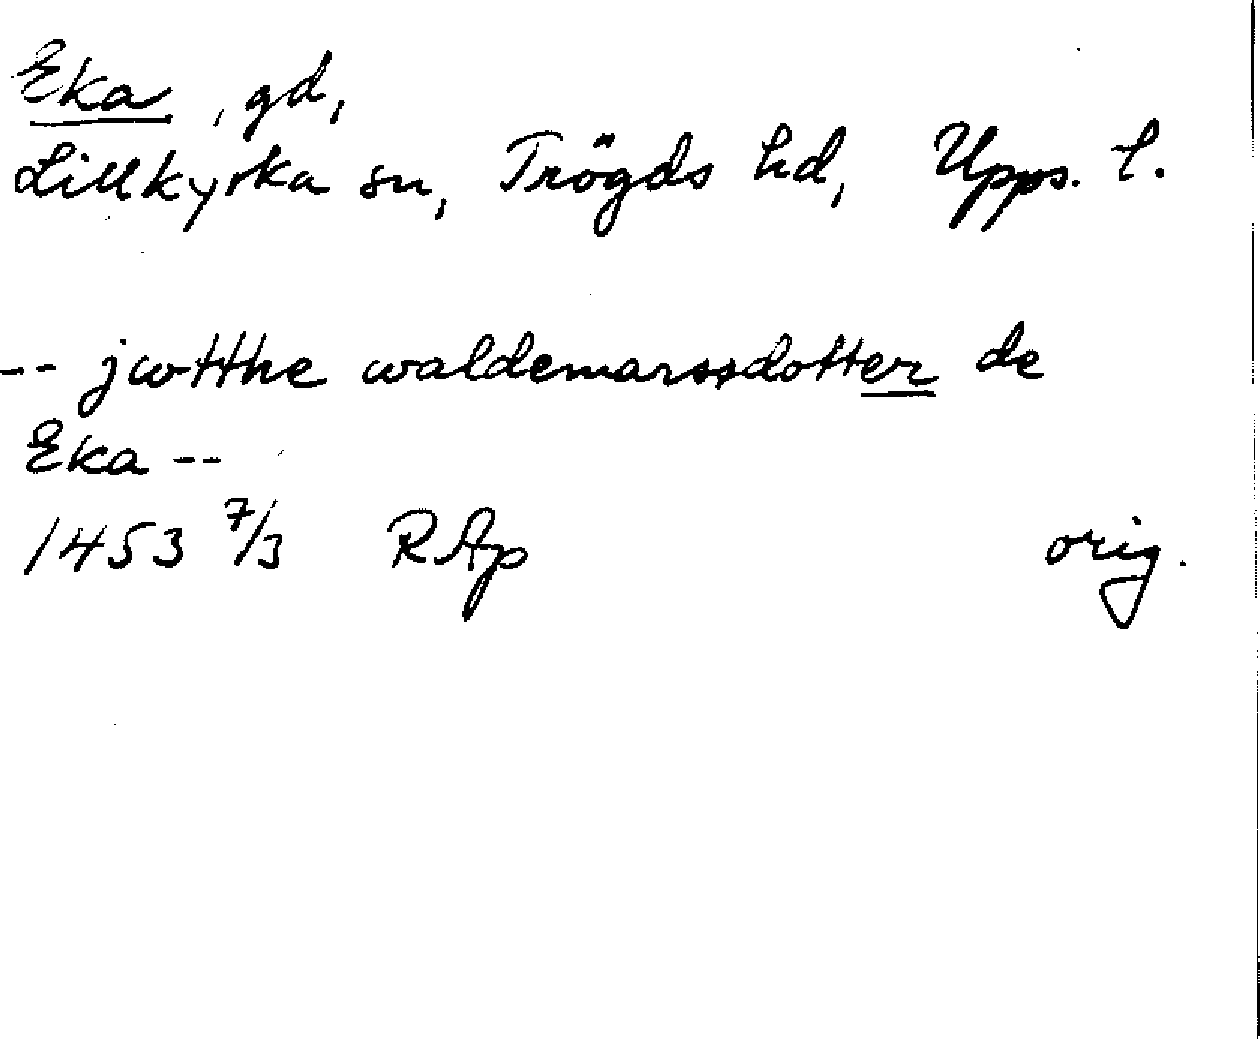 Eka, gd,
Lillkyrka sn, Trögds hd, Upps. l.
-- jwtthe waldemarssdotter de
Eka --
1453 7/3 RAp orig.